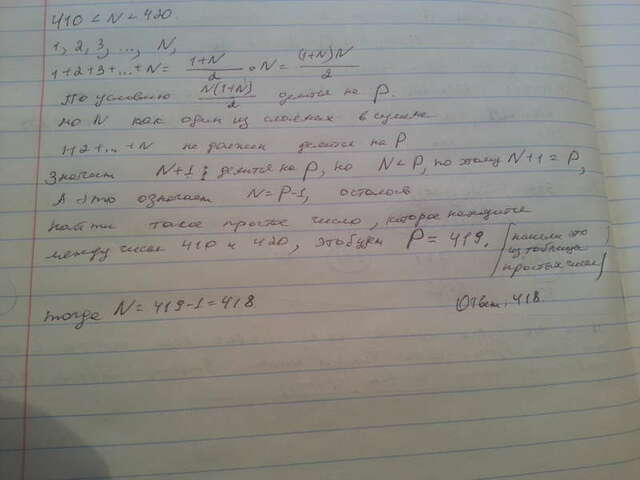 410 < N < 420.
1, 2, 3, ..., N,
1+2+3+...+N = \frac{1+N}{2} \cdot N = \frac{(1+N)N}{2}
По условию \frac{N(1+N)}{2} делится на P.
но N как один из слагаемых в сумме
1+2+...+N не должен делится на P
Значит N+1 делится на P, но N < P, поэтому N+1 = P,
А это означает N = P-1, осталось
найти такое простое число, которое находится
между числа 410 и 420, это будет P = 419. нашли это
из таблица
простых чисел
тогда N = 419-1 = 418 Ответ: 418